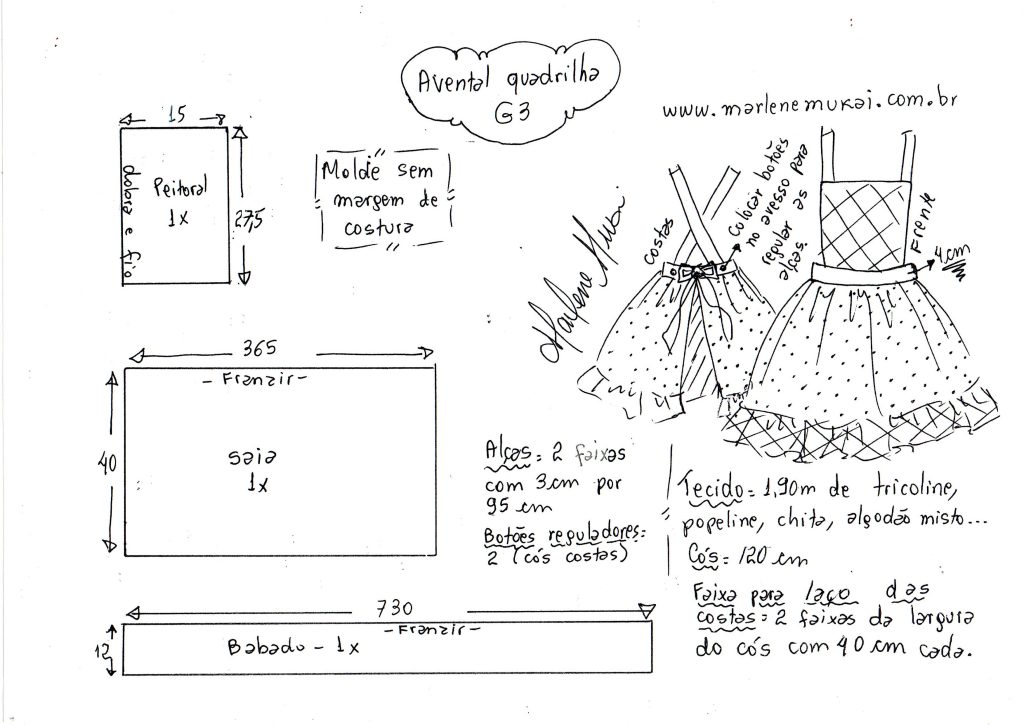 Avental quadrilha
G3
www.marlenemukai.com.br
15
dobra e fio
Peitoral
1x
27,5
Molde sem
margem de
costura
Marlene Mukai
costas
colocar botões
no avesso para
regular as
alças.
Frente
4 cm
365
- Franzir -
40
saia
1x
Alças = 2 faixas
com 3 cm por
95 cm
Botões reguladores =
2 (cós costas)
Tecido = 1,90m de tricoline,
popeline, chita, algodão misto...
Cós = 120 cm
Faixa para laço das
costas = 2 faixas da largura
do cós com 40 cm cada.
730
- Franzir -
12
Babado - 1x